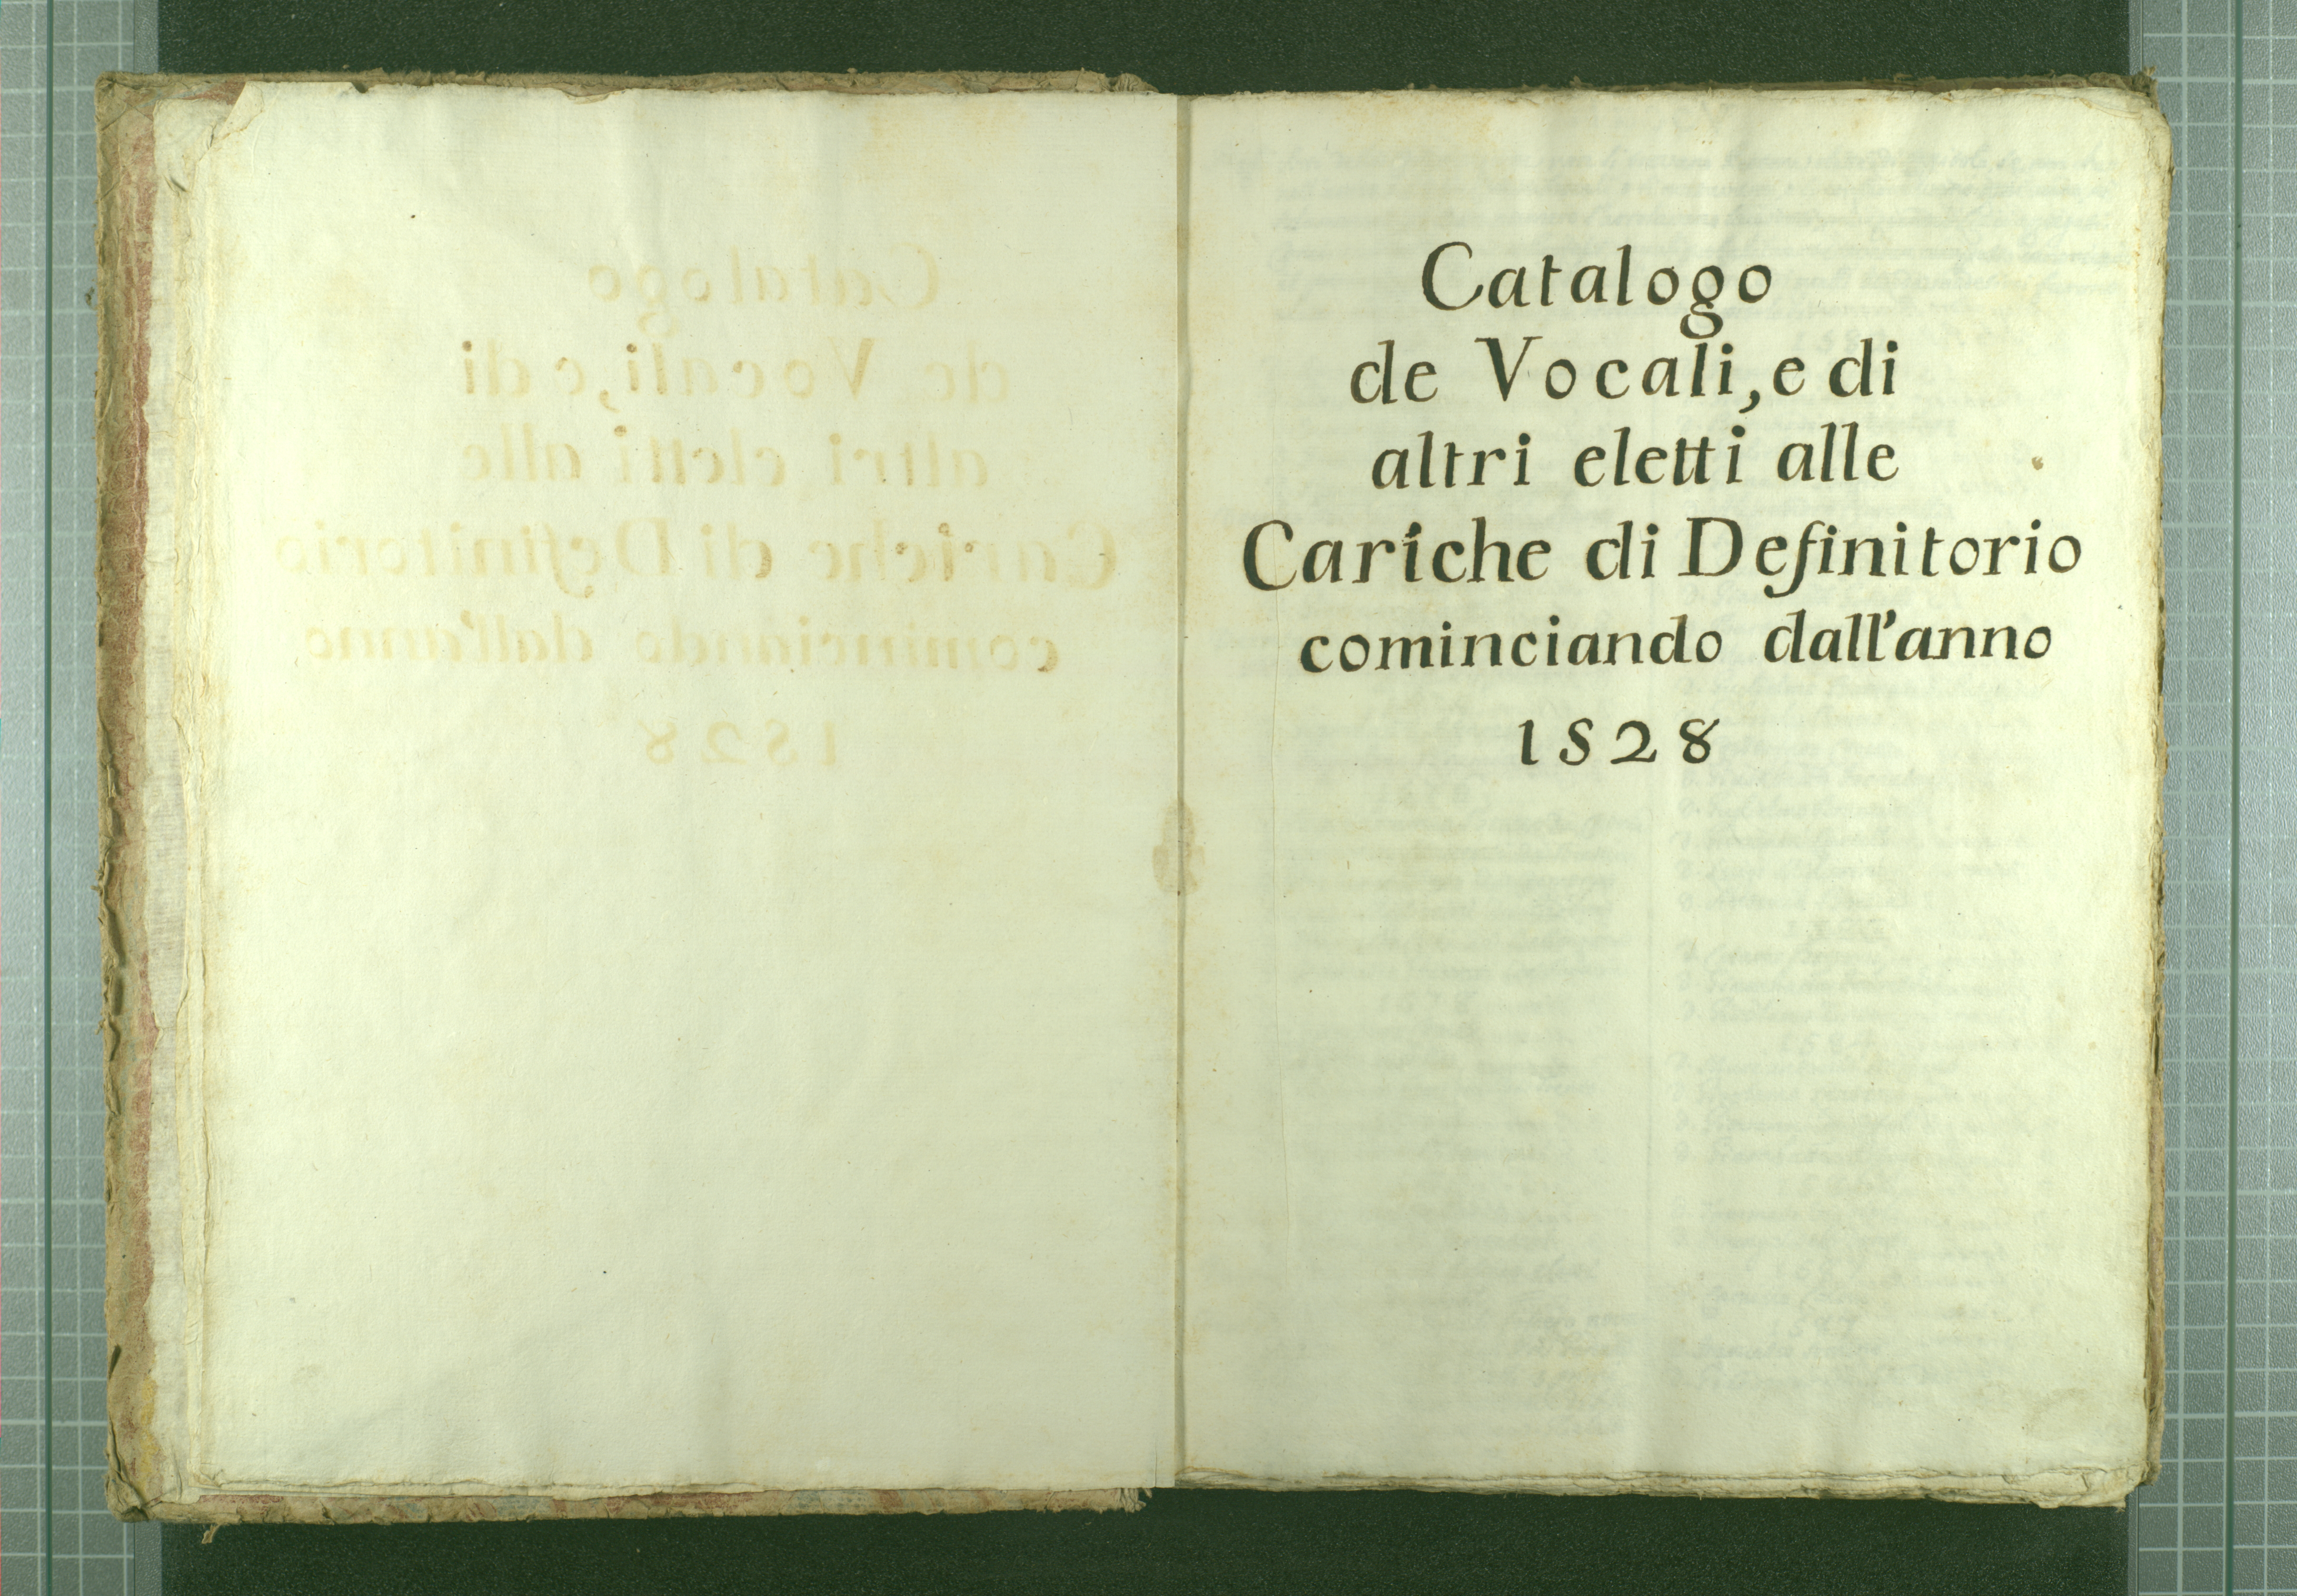 Catalogo
de Vocali, e di
altri eletti alle
Cariche di Definitorio
cominciando dall'anno
1528